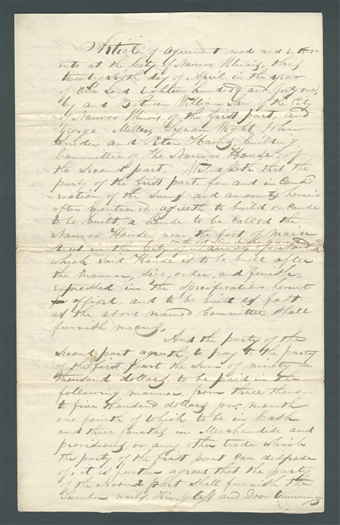 Article of agreement made and entered
into at the City of Nauvoo Illinois, this
twenty sixth day of April in the year
of Our Lord Eighteen hundred and forty one,
by and between William Law of the City
of Nauvoo Illinois of the first part, and
George Miller, Lyman Wight, John
Snider and Peter Haws, building
Committee of the Nauvoo House, of
the Second part, Witnesseth that the
party of the first part for and in Consid
eration of the Sum and amount herein
after mentioned agrees to build or Cause
to be built a house to be Called the
Nauvoo House, near the foot of Main
Street in the City of Nauvoo
which said House is to be built after
the manner, size, order, and finish,
expressed in the specifications hereunto
affixed, and to be build as fast
as the above named Committee Shall
furnish means,
And the party of the
Second part agreeth to pay to the party
of the first part the Sum of ninety
thousand dollars to be paid in the
following manner, from three thous
to five thousand dollars per month
one fourth of which to be in Cash
and three fourths in Merchandise and
provisions or any other trade which
the party of the first part can dispose
of, it is further agreed that the party
of the Second part Shall furnish the
Lumber nails, Glass and Door trimmings